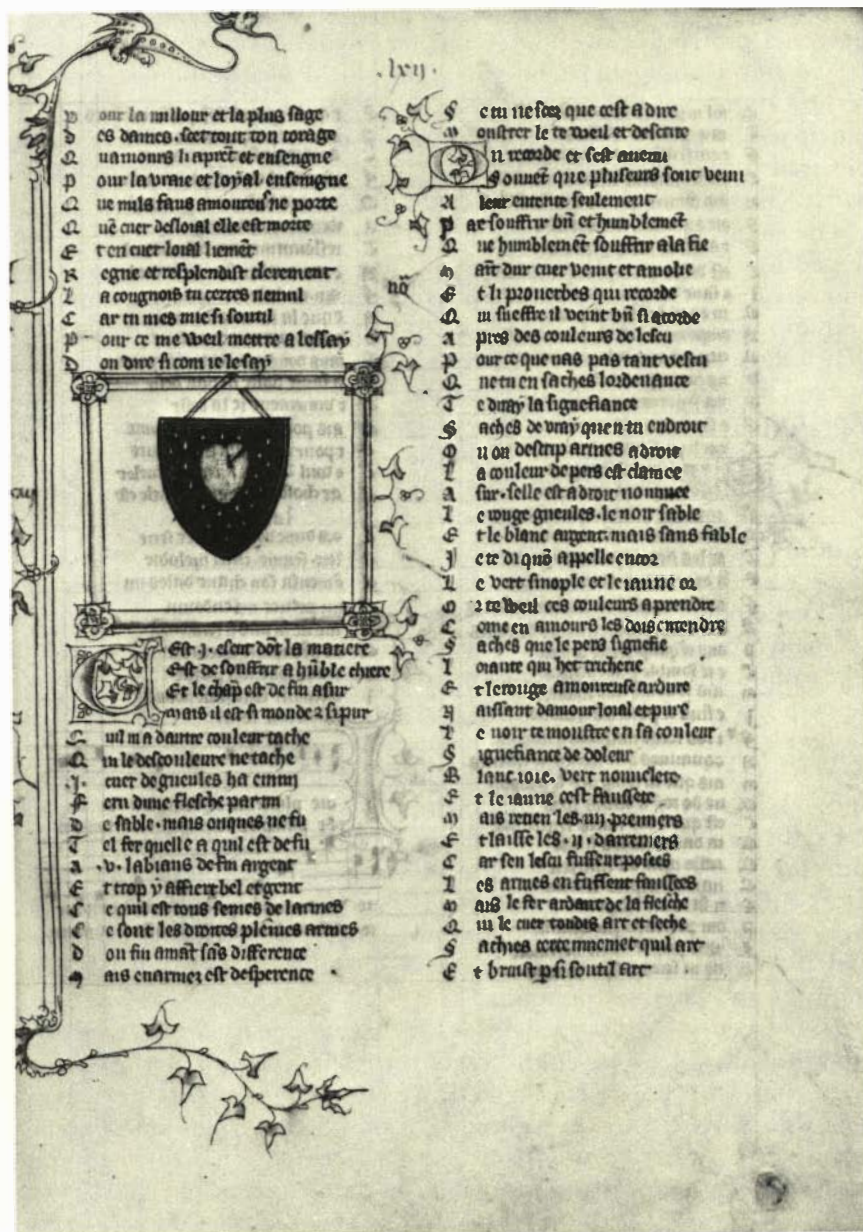 .lxij.
P our la millour et la plus sage
D es dames . sert tout ton corage
Q uamours li aprēt et enseigne
P our la vraie et loyal enseingne
Q ue nuls faus amoureus ne porte
Q uē cuer desloial elle est morte
E t en cuer loial liemēt
R egne et resplendist clerement
L a cougnois tu certes nennil
C ar tu nies mie si soutil
P our ce me weil mettre a lessay
D on dire si com ie le say
C Est .j. escut dōt la matiere
Est de souffrir a hūble chiere
Et le chāp est de fin asur
Mais il est si monde 2 si pur
Q uil ni a dautre couleur tache
Q ui le descouleure ne tache
.j. cuer de gueules ha enmi
F eru dune flesche par mi
D e sable . mais onques ne fu
T el fer quelle a quil est de fu
A .v. labiaus de fin argent
E t trop y affiert bel et gent
C e quil est tous semes de larmes
C e sont les droites pleines armes
D ou fin amāt sās difference
M ais enarmez est desperence
S e tu ne scez que cest a dire
M onstrer le te weil et descrire
O n recorde et sest auenu
Souuēt que pluseurs sont venu
A leur entente seulement
P ar souffrir bn̄ et humblemēt
Q ue humblemēt souffrir a la fie
M aīt dur cuer veint et amolie
nō
E t li prouerbes qui recorde
Q ui sueffre il veint bn̄ si acorde
A pres des couleurs de lescu
P our ce que nas pas tant vescu
Q ue tu en saches lordenance
T e diray la signefiance
S aches de vray quen tu endroit
O u on descrip armes a droit
L a couleur de pers est clamee
A sur . selle est a droit nommee
L e rouge gueules . le noir sable
E t le blanc argent . mais sans fable
J e te di quō appelle encor
L e vert sinople et le iaune or
O r te weil ces couleurs aprendre
C ome en amours les dois entendre
S aches que le pers signefie
L oiaute qui het tricherie
E t le rouge amoureuse ardure
N aissant damour loial et pure
L e noir te monstre en sa couleur
S ignefiance de doleur
B lanc ioie . vert nouuelete
E t le iaune cest faussete
M ais retien les .iiij. premiers
E t laisse les .ij. darreniers
C ar sen lescu fussent posees
L es armes en fussent faussees
M ais le fer ardant de la flesche
Q ui le cuer toudis art et seche
S achies certeinnemēt quil art
E t bruist p si soutil art